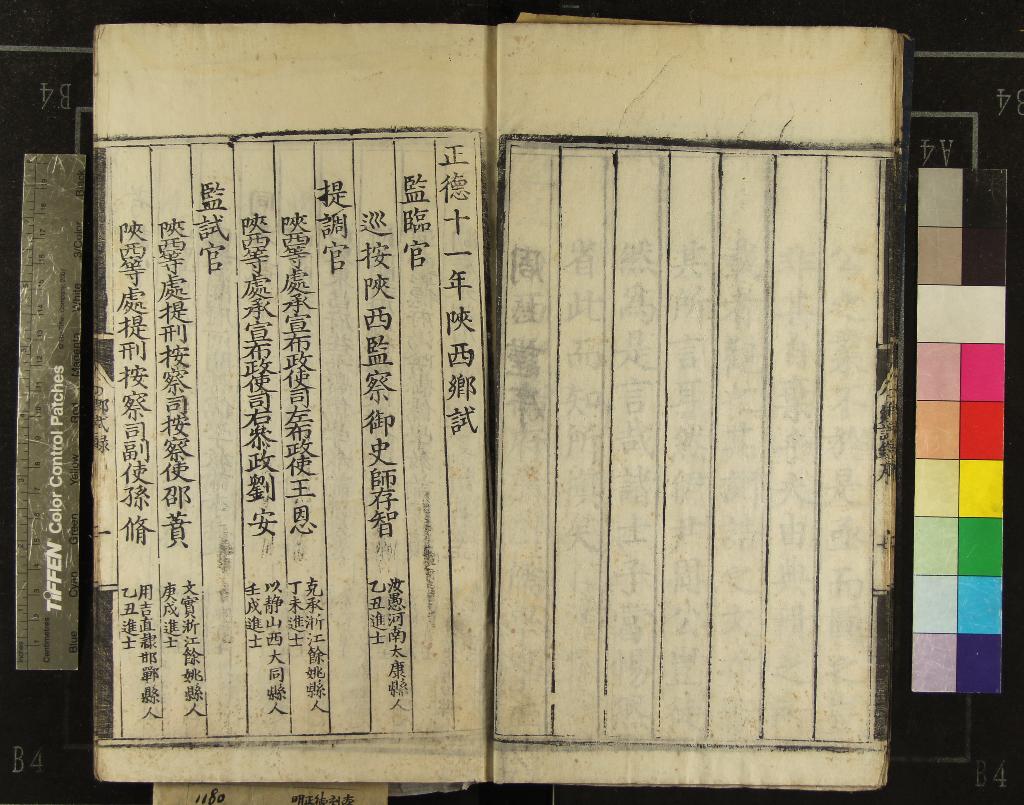 正德十一年陝西鄉試
監臨官
巡按陝西監察御史師存智
汝愚河南太康縣人
乙丑進士
提調官
陝西等處承宣布政使司左布政使王恩
克承浙江餘姚縣人
丁未進士
陝西等處承宣布政使司右叅政劉安
以靜山西大同縣人
壬戌進士
監試官
陝西等處提刑按察司按察使邵蕡
文實浙江餘姚縣人
庚戌進士
陝西等處提刑按察司副使孫脩
用吉直隸邯鄲縣人
乙丑進士
TIFFEN Color Control Patches
Blue
Cyan
Green
Yellow
Red
Magenta
White
3/Color
Black
Centimetres
B4
B4
B4
B4
A4
1180